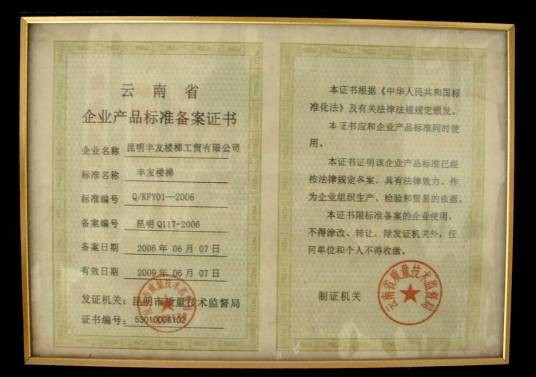 云南省
企业产品标准备案证书
企业名称 昆明丰友楼梯工贸有限公司
标准名称 丰友楼梯
标准编号 Q/KFY01—2006
备案编号 昆明Q117-2006
备案日期 2006 年 06 月 07 日
有效日期 2009 年 06 月 07 日
发证机关：昆明市质量技术监督局
证书编号：53010006102
本证书根据《中华人民共和国标
准化法》及有关法律法规规定颁发。
本证书应和企业产品标准同时使
用。
本证书证明该企业产品标准已经
按法律规定备案，具有法律效力，作
为企业组织生产、检验和贸易的依据。
本证书限标准备案的企业使用，
不得涂改、转让。除发证机关外，任
何单位和个人不得收缴。
制证机关
云南省质量技术监督局